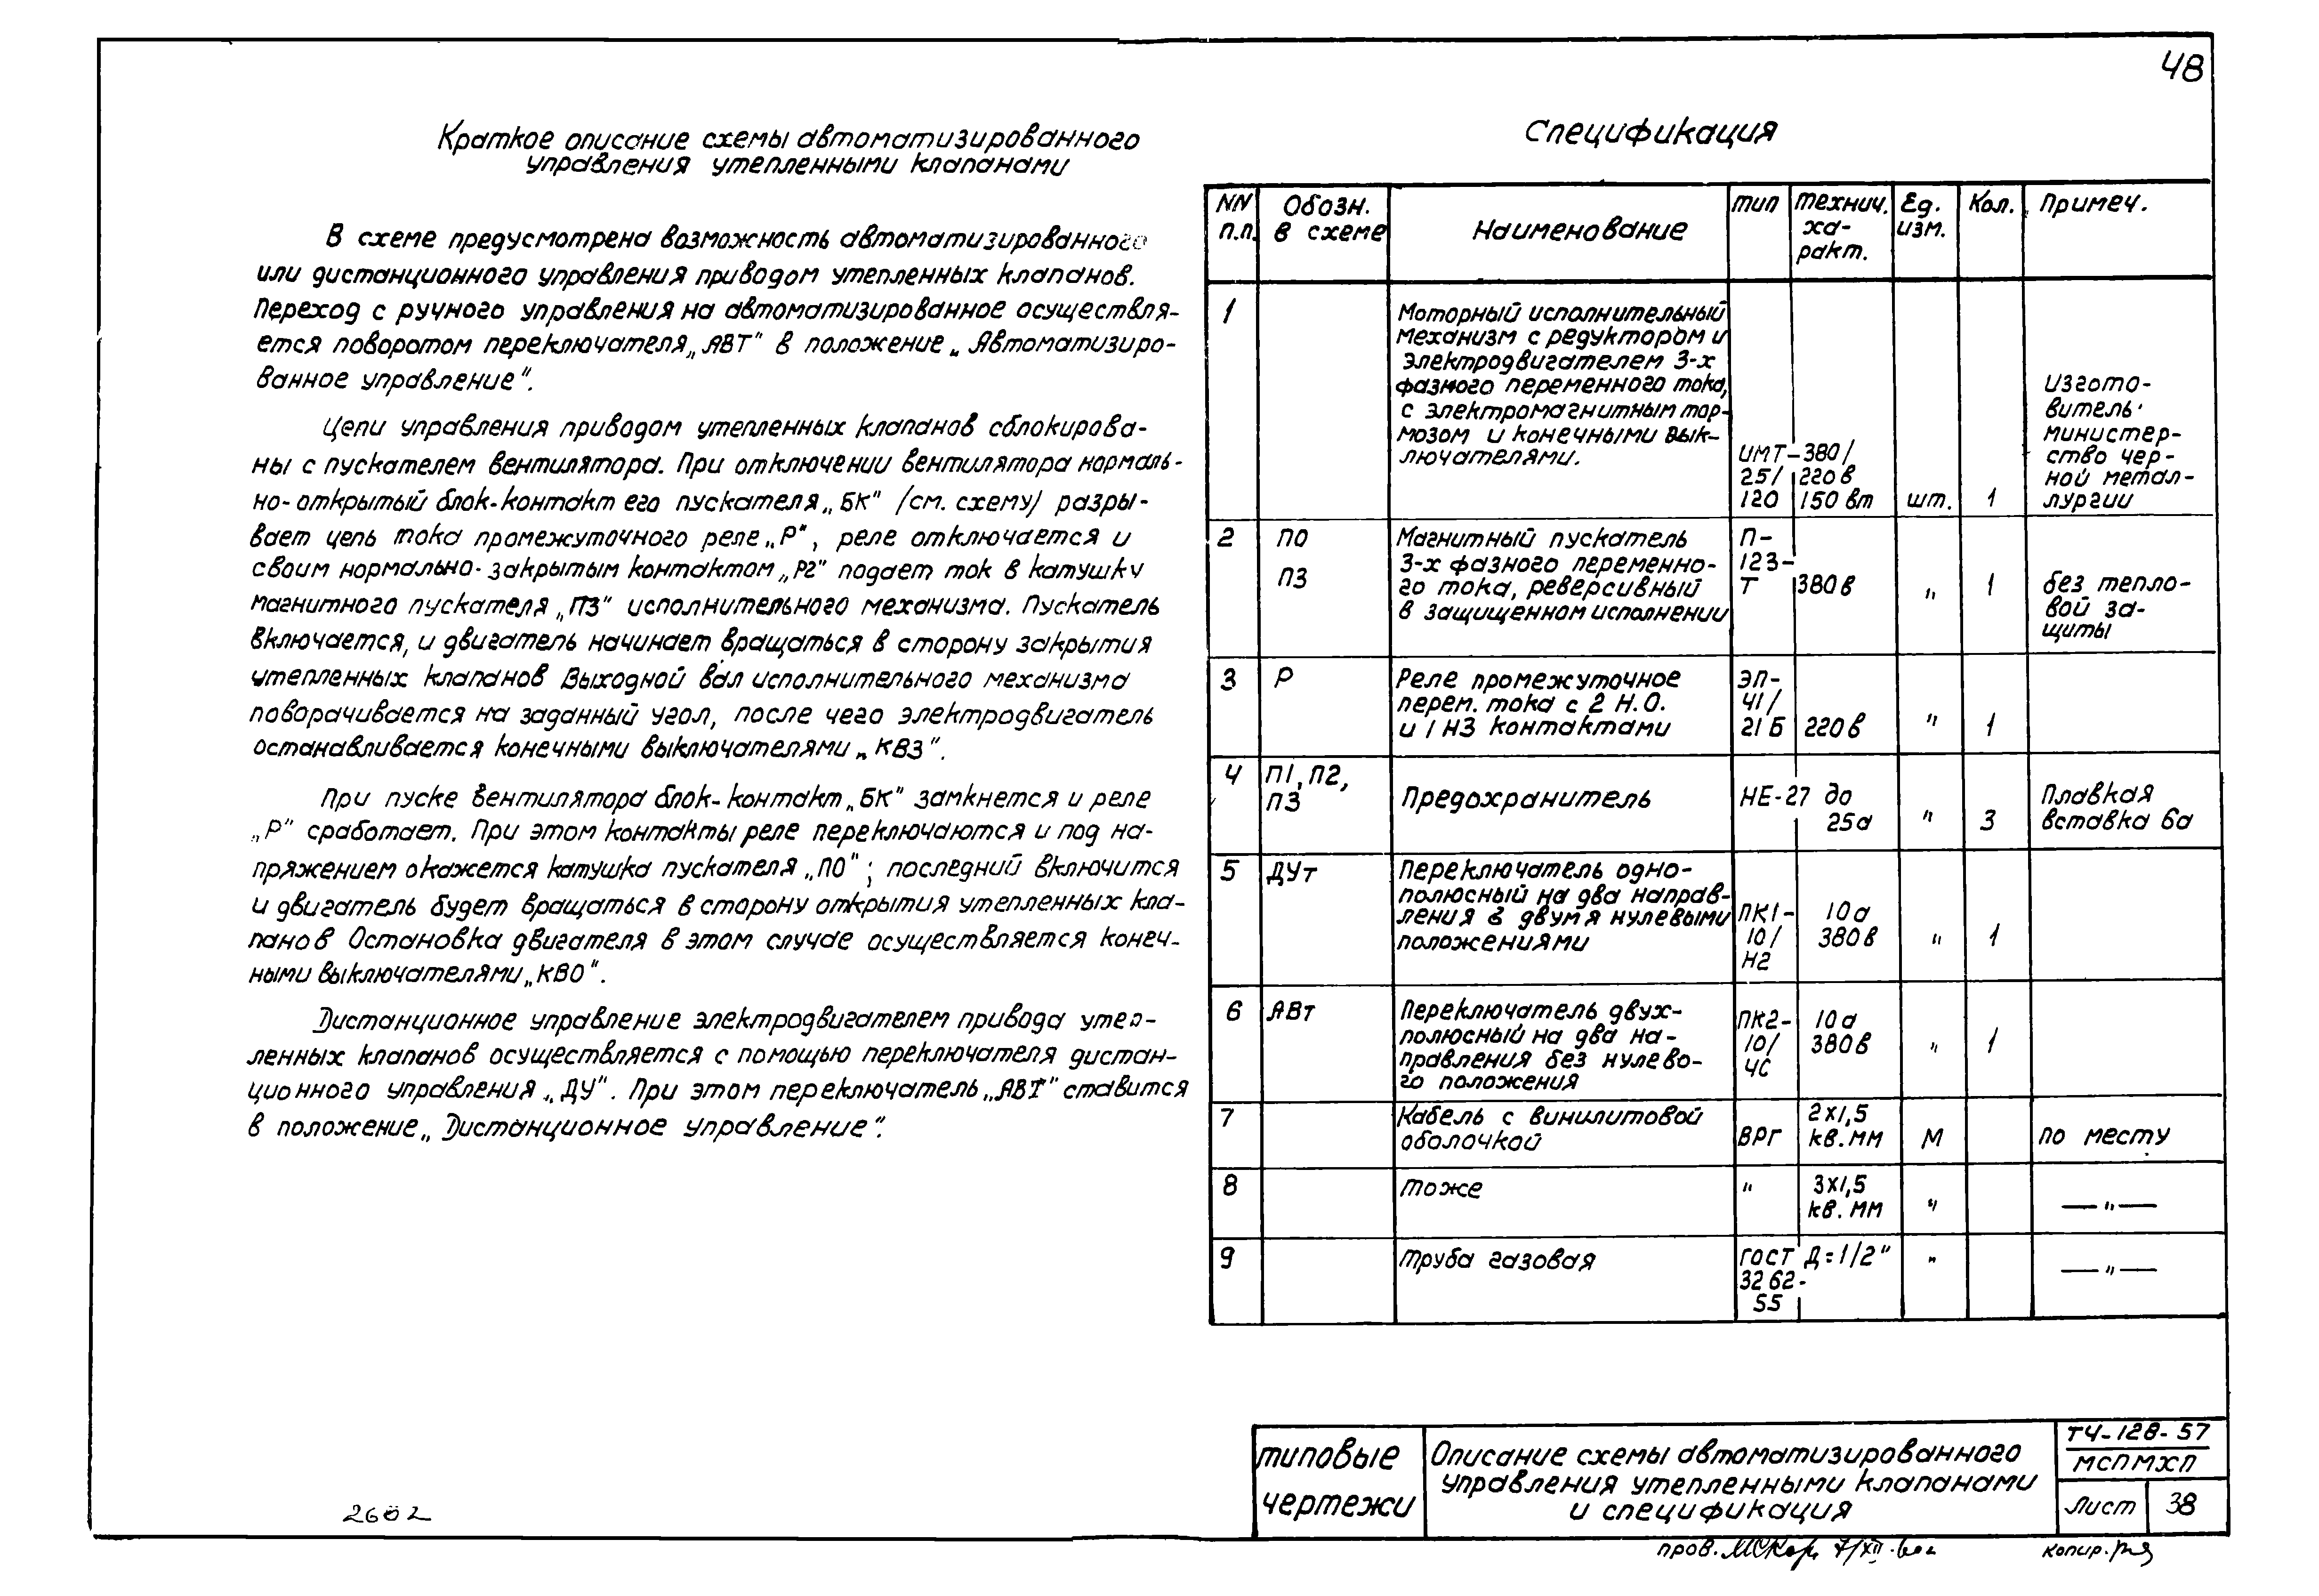 48
Краткое описание схемы автоматизированного
управления утепленными клапанами
В схеме предусмотрена возможность автоматизированного
или дистанционного управления приводом утепленных клапанов.
Переход с ручного управления на автоматизированное осуществля-
ется поворотом переключателя „АВТ" в положение „Автоматизиро-
ванное управление".
Цепи управления приводом утепленных клапанов сблокирова-
ны с пускателем вентилятора. При отключении вентилятора нормаль-
но-открытый блок-контакт его пускателя „БК" /см. схему/ разры-
вает цепь тока промежуточного реле „Р", реле отключается и
своим нормально-закрытым контактом „Р2" подает ток в катушку
магнитного пускателя „ПЗ" исполнительного механизма. Пускатель
включается, и двигатель начинает вращаться в сторону закрытия
утепленных клапанов Выходной вал исполнительного механизма
поворачивается на заданный угол, после чего электродвигатель
останавливается конечными выключателями „КВЗ".
При пуске вентилятора блок-контакт „БК" замкнется и реле
„Р" сработает. При этом контакты реле переключаются и под на-
пряжением окажется катушка пускателя „ПО"; последний включится
и двигатель будет вращаться в сторону открытия утепленных кла-
панов Остановка двигателя в этом случае осуществляется конеч-
ными выключателями „КВО".
Дистанционное управление электродвигателем привода утеп-
ленных клапанов осуществляется с помощью переключателя дистан-
ционного управления „ДУ". При этом переключатель „АВТ" ставится
в положение „Дистанционное управление".
Спецификация
NN п.п. Обозн. в схеме Наименование Тип Технич. ха- ракт. Ед. изм. Кол. Примеч.
1 Моторный исполнительный
механизм с редуктором и
электродвигателем 3-х
фазного переменного тока,
с электромагнитным тор-
мозом и конечными вык-
лючателями.
ИМТ-
25/
120
380/
220в
150 вт
шт. 1
Изгото-
витель
министер-
ство чер-
ной метал-
лургии
2 ПО
ПЗ
Магнитный пускатель
3-х фазного переменно-
го тока, реверсивный
в защищенном исполнении
П-
123-
Т
380в " 1
без тепло-
вой за-
щиты
3 Р
Реле промежуточное
перем. тока с 2 Н.О.
и 1 НЗ контактами
ЭП-
41/
21Б
220в " 1
4 П1, П2,
ПЗ
Предохранитель НЕ-27 до
25а " 3
Плавкая
вставка 6а
5 ДУт
Переключатель одно-
полюсный на два направ-
ления с двумя нулевыми
положениями
ПК1-
10/
Н2
10а
380в " 1
6 АВт
Переключатель двух-
полюсный на два на-
правления без нулево-
го положения
ПК2-
10/
4С
10а
380в " 1
7 Кабель с винилитовой
оболочкой
ВРГ 2х1,5
кв.мм М по месту
8 Тоже " 3х1,5
кв.мм " — " —
9 Труба газовая ГОСТ
3262-
55
Д=1/2" " — " —
Типовые
чертежи
Описание схемы автоматизированного
управления утепленными клапанами
и спецификация
ТЧ-128-57
МСПМХП
Лист 38
2602
пров.
копир.